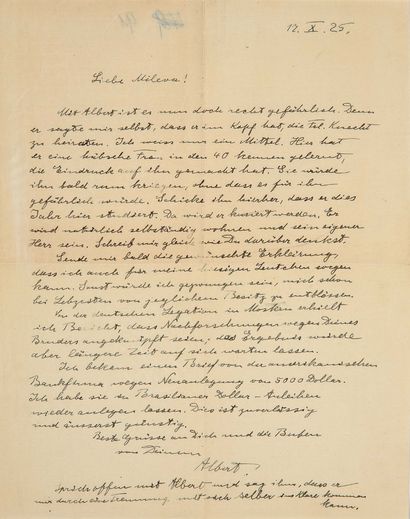 14. X. 25.
Liebe Mileva!
Mit Albert ist es nun doch recht gefährlich. Denn
er sagte mir selbst, dass er im Kopf hat, die Frl. Knecht
zu heiraten. Ich weiss nur ein Mittel. Hier hat
er eine hübsche Frau in den 40 kennen gelernt,
die Eindruck auf ihn gemacht hat. Sie würde
ihn bald rum kriegen, ohne dass es für ihn
gefährlich würde. Schicke ihn hierher, dass er dies
Jahr hier studiert. Da wird er kuriert werden. Er
wird natürlich selbständig wohnen und sein eigener
Herr sein. Schreib mir gleich wie Du darüber denkst.
Sende mir bald die gewünschte Erklärung,
dass ich auch für meine hiesigen Leutchen sorgen
kann. Sonst würde ich gezwungen sein, mich schon
bei Lebzeiten von jeglichem Besitz zu entblössen.
Von der deutschen Legation in Moskau erhielt
ich Bericht, dass Nachforschungen wegen Deines
Bruders angeknüpft seien; das Ergebnis würde
aber längere Zeit auf sich warten lassen.
Ich bekam einen Brief von der amerikanischen
Bankfirma wegen Neuanlegung von 5000 Dollar.
Ich habe sie in Brasilianer Dollar-Anleihen
wieder anlegen lassen. Dies ist zuverlässig
und äusserst günstig.
Beste Grüsse an Dich und die Buben
von Deinem
Albert.
Sprich offen mit Albert und sag ihm, dass er
nur durch eine Trennung mit sich selber ins Klare kommen
kann.